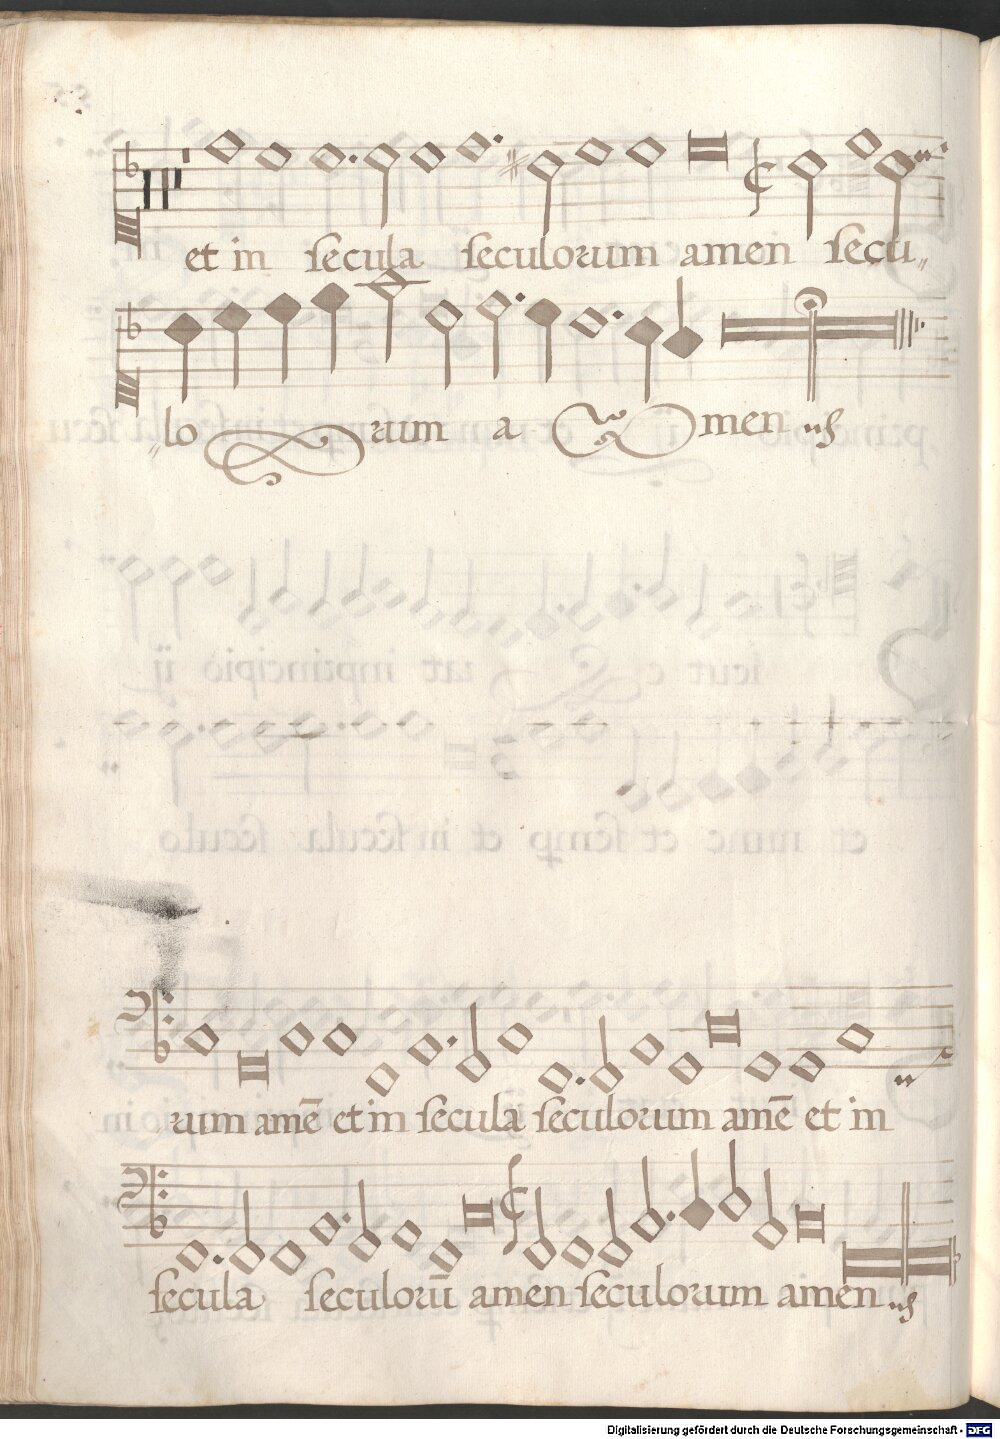 et in secula seculorum amen secu„
„lo rum a men
rum amē et in secula seculorum amē et in
secula seculorū amen seculorum amen
Digitalisierung gefördert durch die Deutsche Forschungsgemeinschaft - DFG